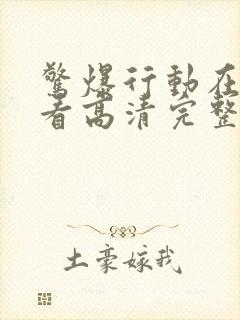 驚爆行動在
看高清完整
土豪嫁我